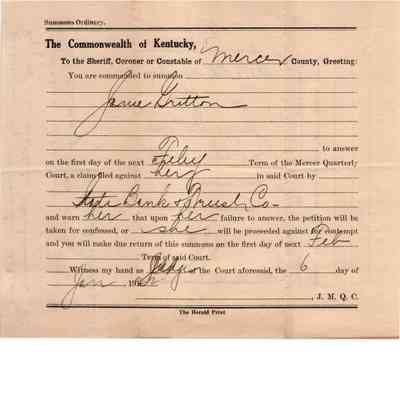 Summons Ordinary.
The Commonwealth of Kentucky,
To the Sheriff, Coroner or Constable of Mercer County, Greeting:
You are commanded to summon
Janie Gritton
to answer
on the first day of the next Feby Term of the Mercer Quarterly
Court, a claim filed against her in said Court by
State Bank & Trust Co
and warn her that upon her failure to answer, the petition will be
taken for confessed, or she will be proceeded against for contempt
and you will make due return of this summons on the first day of next Feb
Term of said Court.
Witness my hand as Judge of the Court aforesaid, the 6 day of
Jan 19
, J. M. Q. C.
The Herald Print